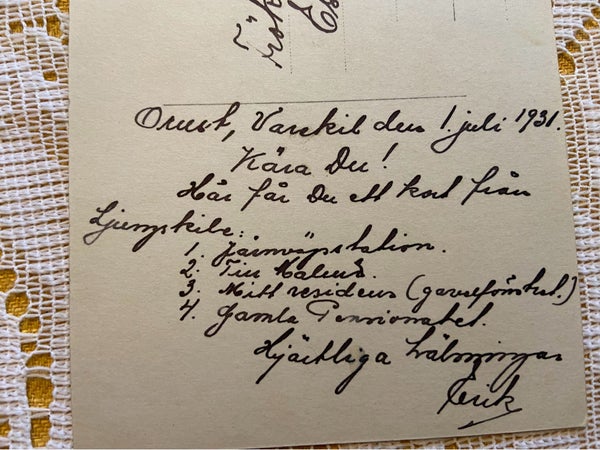 Frök
Es
Orust, Varekil den 1. juli 1931.
Kära Du!
Här får Du ett kort från
Ljungskile:
1. Järnvägsstation.
2.
3. Mitt residens (gavelfönstret.)
4. Gamla Pensionatet.
Hjärtliga hälsningar
Erik